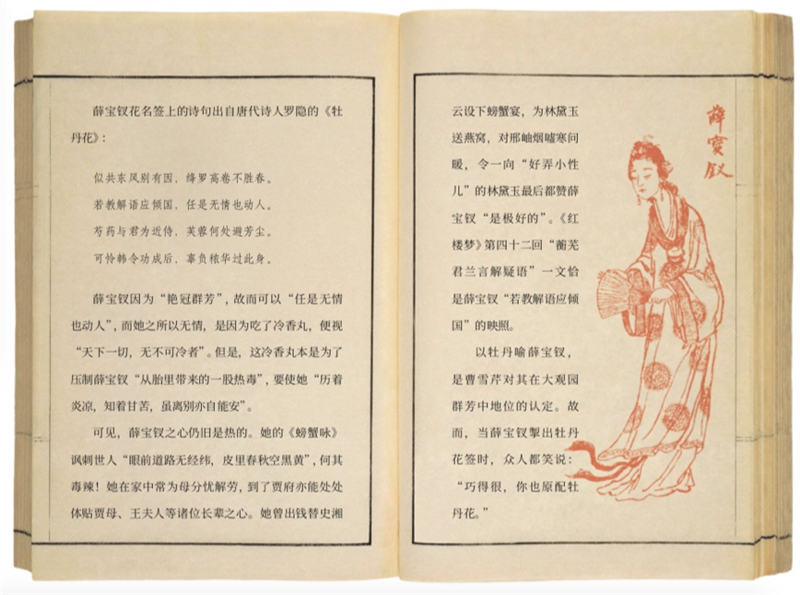 薛宝钗花名签上的诗句出自唐代诗人罗隐的《牡
丹花》：
似共东风别有因，绛罗高卷不胜春。
若教解语应倾国，任是无情也动人。
芍药与君为近侍，芙蓉何处避芳尘。
可怜韩令功成后，辜负秾华过此身。
薛宝钗因为“艳冠群芳”，故而可以“任是无情
也动人”，而她之所以无情，是因为吃了冷香丸，便视
“天下一切，无不可冷者”。但是，这冷香丸本是为了
压制薛宝钗“从胎里带来的一股热毒”，要使她“历着
炎凉，知着甘苦，虽离别亦自能安”。
可见，薛宝钗之心仍旧是热的。她的《螃蟹咏》
讽刺世人“眼前道路无经纬，皮里春秋空黑黄”，何其
毒辣！她在家中常为母分忧解劳，到了贾府亦能处处
体贴贾母、王夫人等诸位长辈之心。她曾出钱替史湘
云设下螃蟹宴，为林黛玉
送燕窝，对邢岫烟嘘寒问
暖，令一向“好弄小性
儿”的林黛玉最后都赞薛
宝钗“是极好的”。《红
楼梦》第四十二回“蘅芜
君兰言解疑语”一文恰
是薛宝钗“若教解语应倾
国”的映照。
以牡丹喻薛宝钗，
是曹雪芹对其在大观园
群芳中地位的认定。故
而，当薛宝钗掣出牡丹
花签时，众人都笑说：
“巧得很，你也原配牡
丹花。”
薛宝钗